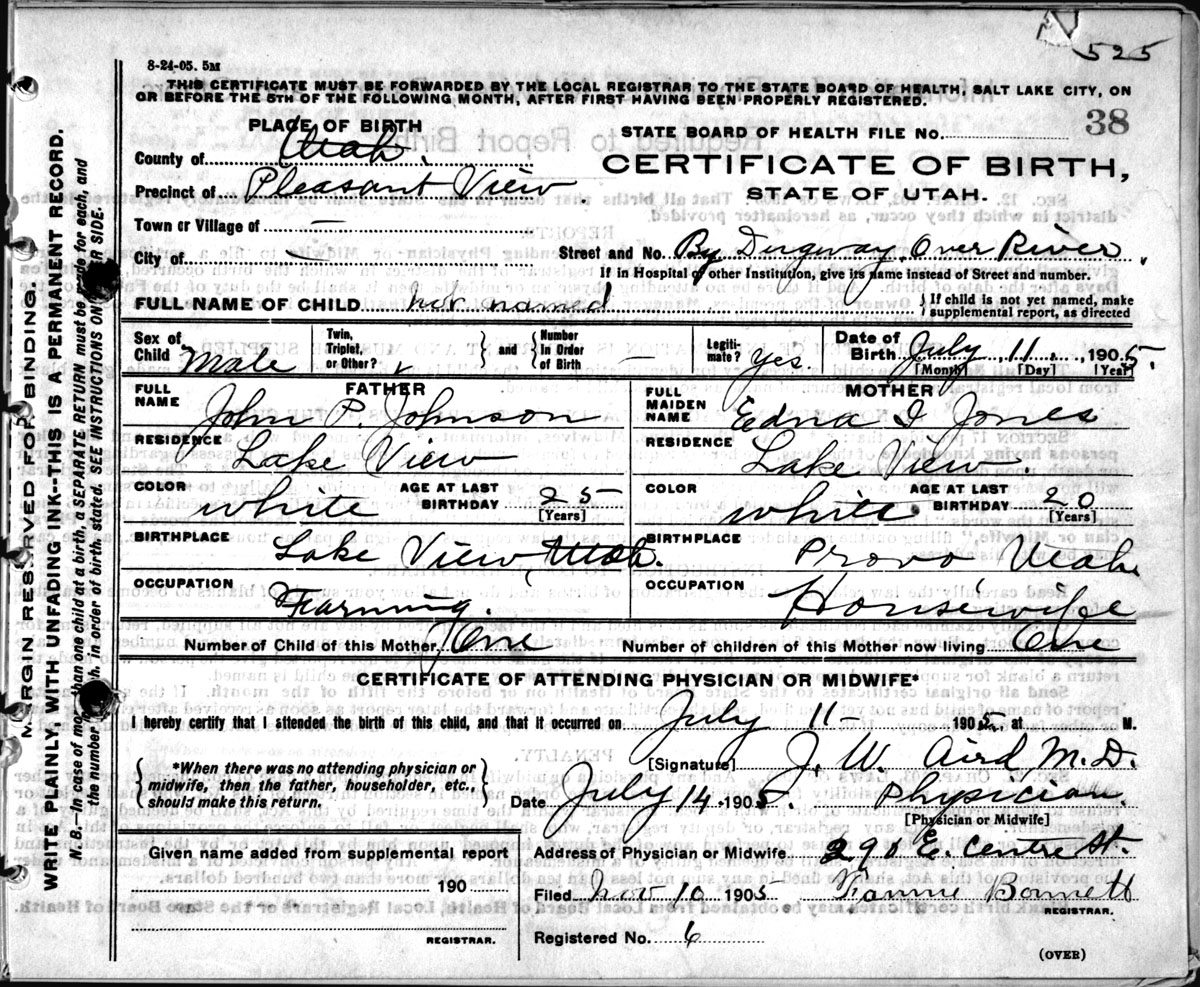 525
8-24-05. 5M
THIS CERTIFICATE MUST BE FORWARDED BY THE LOCAL REGISTRAR TO THE STATE BOARD OF HEALTH, SALT LAKE CITY, ON
OR BEFORE THE 5TH OF THE FOLLOWING MONTH, AFTER FIRST HAVING BEEN PROPERLY REGISTERED.
PLACE OF BIRTH
STATE BOARD OF HEALTH FILE No. 38
County of Utah.
CERTIFICATE OF BIRTH,
Precinct of Pleasant View
STATE OF UTAH.
Town or Village of —
City of — Street and No. By Dugway Over River
If in Hospital or other Institution, give its name instead of Street and number.
FULL NAME OF CHILD not named } If child is not yet named, make
supplemental report, as directed
Sex of Child Male Twin, Triplet, or Other? } and { Number In Order of Birth — Legiti-mate? Yes. Date of Birth July 11 1905.
[Month] [Day] [Year]
FATHER
FULL NAME John P. Johnson
MOTHER
FULL MAIDEN NAME Edna I Jones
RESIDENCE Lake View
RESIDENCE Lake View.
COLOR white AGE AT LAST BIRTHDAY 25 [Years]
COLOR white AGE AT LAST BIRTHDAY 20 [Years]
BIRTHPLACE Lake View, Utah.
BIRTHPLACE Provo Utah
OCCUPATION Farming.
OCCUPATION Housewife
Number of Child of this Mother One Number of children of this Mother now living One
CERTIFICATE OF ATTENDING PHYSICIAN OR MIDWIFE*
I hereby certify that I attended the birth of this child, and that it occurred on July 11- 1905, at M.
{ *When there was no attending physician or
midwife, then the father, householder, etc.,
should make this return. }
[Signature] J. W. Aird M.D.
Date July 14 1905. Physician.
[Physician or Midwife]
Given name added from supplemental report
Address of Physician or Midwife 290 E. Centre St.
190
Filed Nov 10 1905 Bonnett
REGISTRAR.
REGISTRAR.
Registered No. 6
(OVER)
MARGIN RESERVED FOR BINDING.
WRITE PLAINLY WITH UNFADING INK--THIS IS A PERMANENT RECORD.
N. B.—In case of more than one child at a birth, a SEPARATE RETURN must be made for each, and
the number of each, in order of birth stated. SEE INSTRUCTIONS ON OTHER SIDE.